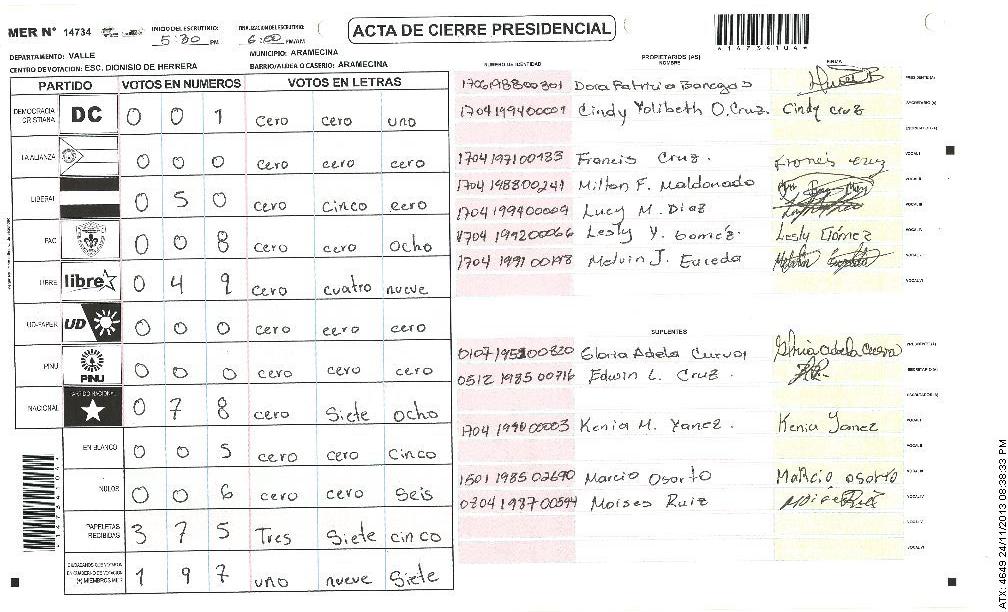 MER N° 14734
INICIO DEL ESCRUTINIO: 5:30 PM
FINALIZACION DEL ESCRUTINIO: 6:00 PM/AM
ACTA DE CIERRE PRESIDENCIAL
DEPARTAMENTO: VALLE
MUNICIPIO: ARAMECINA
CENTRO DE VOTACION: ESC. DIONISIO DE HERRERA
BARRIO/ALDEA O CASERIO: ARAMECINA
PARTIDO VOTOS EN NUMEROS VOTOS EN LETRAS
DEMOCRACIA CRISTIANA DC 0 0 1 cero cero uno
LA ALIANZA 0 0 0 cero cero cero
LIBERAL 0 5 0 cero cinco cero
PAC 0 0 8 cero cero ocho
LIBRE libre 0 4 9 cero cuatro nueve
UD-FAPER UD 0 0 0 cero cero cero
PINU PINU 0 0 0 cero cero cero
NACIONAL PARTIDO NACIONAL 0 7 8 cero Siete ocho
EN BLANCO 0 0 5 cero cero cinco
NULOS 0 0 6 cero cero seis
PAPELETAS RECIBIDAS 3 7 5 Tres Siete cinco
1 9 7 uno nueve Siete
NUMERO DE IDENTIDAD PROPIETARIOS (AS) NOMBRE FIRMA
Dora Patricia Banegas PRESIDENTE (A)
1704199400001 Cindy Yolibeth O. Cruz. Cindy cruz SECRETARIO (A)
ESCRUTADOR (A)
1704197100183 Francis Cruz. Francis cruz VOCAL I
1704198800241 Milton F. Maldonado VOCAL II
1704199400009 Lucy M. Diaz VOCAL III
1704199200066 Lesly Y. Gomez. Lesly Gómez VOCAL IV
Melvin J. Euceda VOCAL V
VOCAL VI
SUPLENTES
0107195200820 Gloria Adela Cueva Gloria Adela Cueva PRESIDENTE (A)
0512198500716 Edwin L. Cruz. SECRETARIO (A)
ESCRUTADOR (A)
1704199000003 Kenia M. Yanez. Kenia Yanez VOCAL I
VOCAL II
1501198502690 Marcio Osorto Marcio osorto VOCAL III
0704198700594 Moises Ruiz Moises Ruiz VOCAL IV
VOCAL V
VOCAL VI
ATX: 4649 24/11/2013 08:38:33 PM